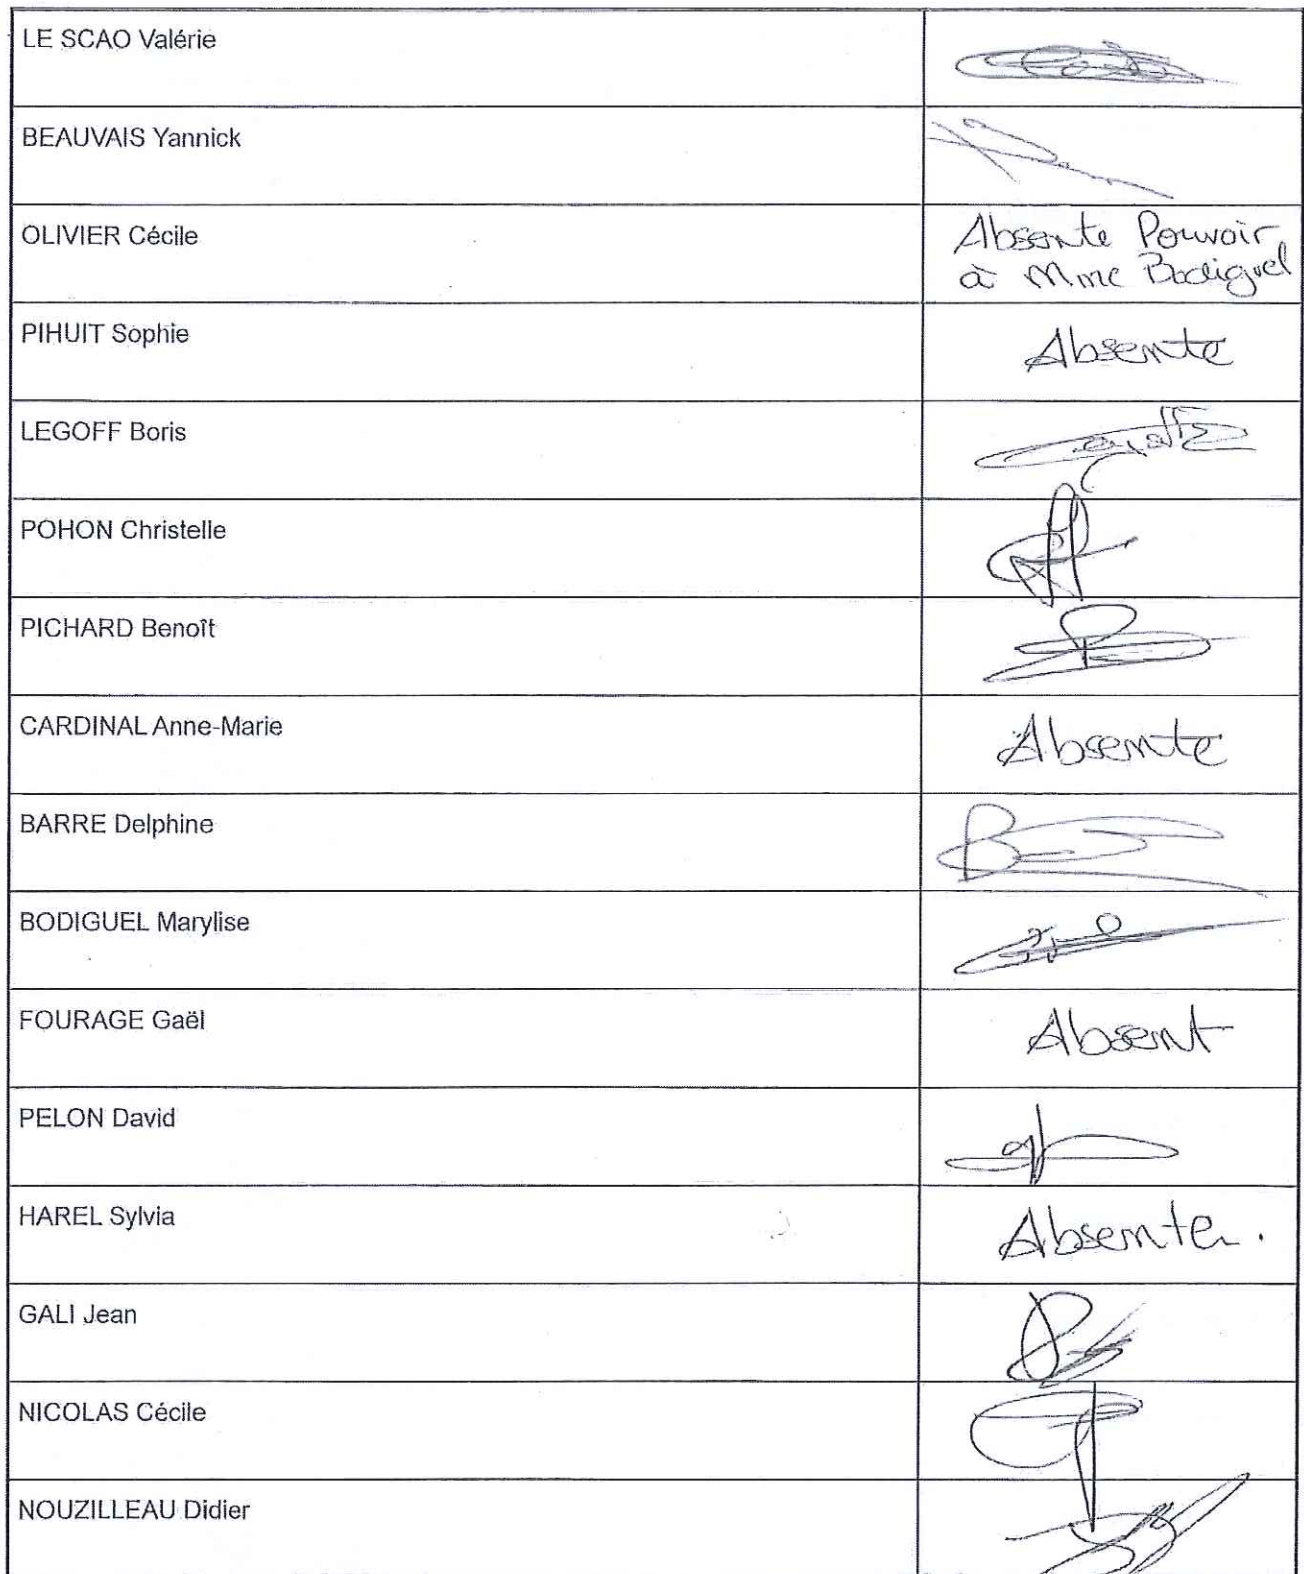 LE SCAO Valérie
BEAUVAIS Yannick
OLIVIER Cécile
Absente Pouvoir
à Mme Bodiguel
PIHUIT Sophie
Absente
LEGOFF Boris
POHON Christelle
PICHARD Benoît
CARDINAL Anne-Marie
Absente
BARRE Delphine
BODIGUEL Marylise
FOURAGE Gaël
Absent
PELON David
HAREL Sylvia
Absente.
GALI Jean
NICOLAS Cécile
NOUZILLEAU Didier